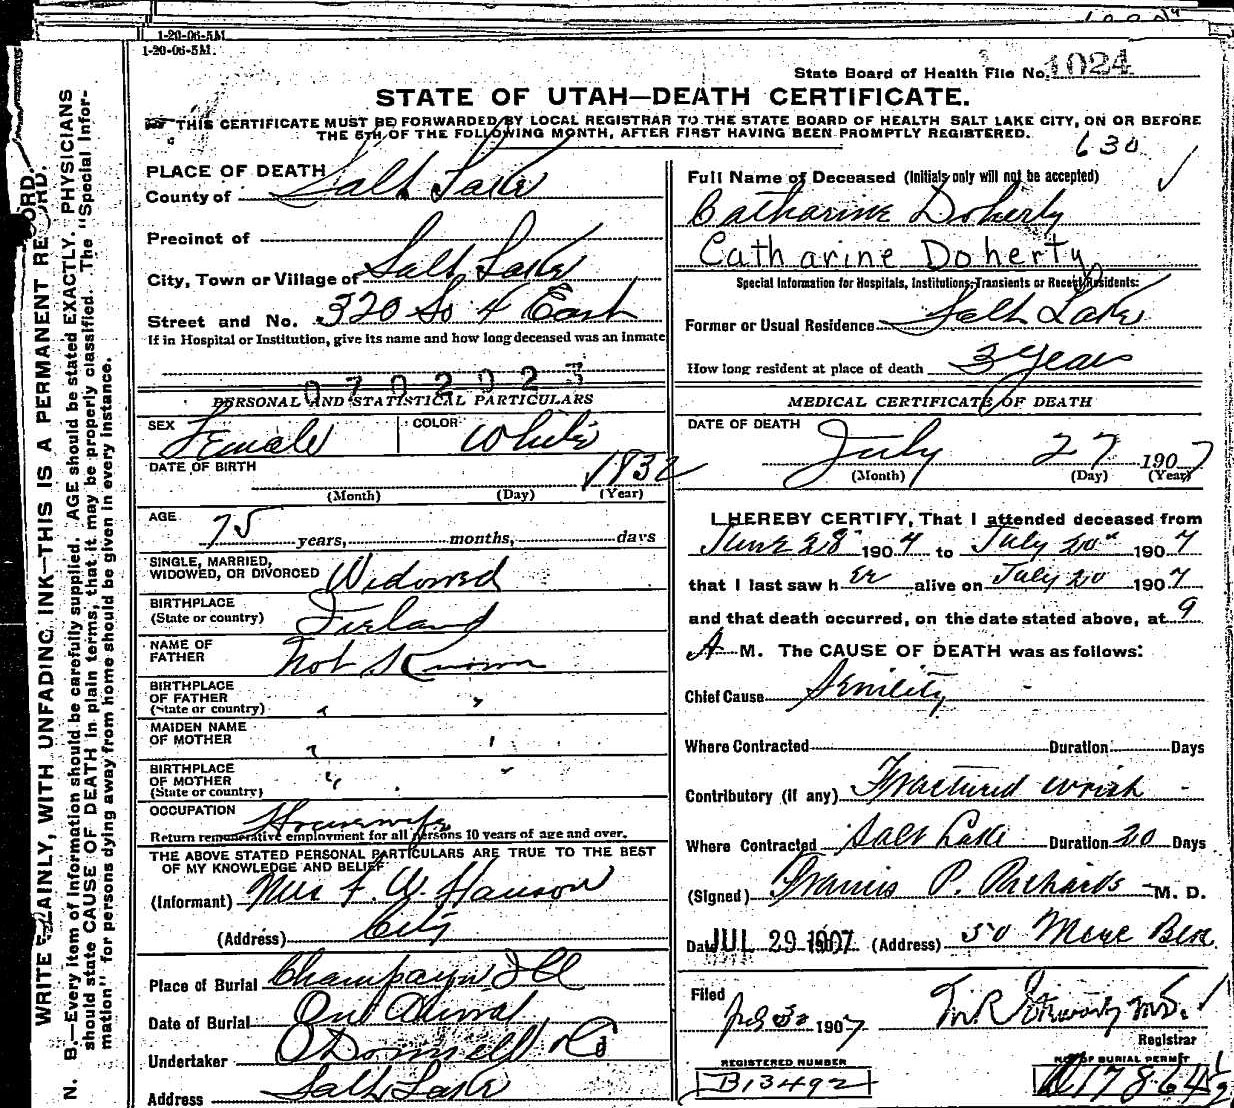 1-20-06-5M.
1-20-06-5M.
State Board of Health File No. 1024
STATE OF UTAH—DEATH CERTIFICATE.
THIS CERTIFICATE MUST BE FORWARDED BY LOCAL REGISTRAR TO THE STATE BOARD OF HEALTH SALT LAKE CITY, ON OR BEFORE
THE 5TH OF THE FOLLOWING MONTH, AFTER FIRST HAVING BEEN PROMPTLY REGISTERED.
630
WRITE PLAINLY, WITH UNFADING INK—THIS IS A PERMANENT RECORD.
N. B.—Every item of information should be carefully supplied. AGE should be stated EXACTLY. PHYSICIANS
should state CAUSE OF DEATH in plain terms, that it may be properly classified. The "Special Infor-
mation" for persons dying away from home should be given in every instance.
PLACE OF DEATH
County of Salt Lake
Precinct of
City, Town or Village of Salt Lake
Street and No. 320 So 4 East
If in Hospital or Institution, give its name and how long deceased was an inmate
070292
PERSONAL AND STATISTICAL PARTICULARS
SEX Female COLOR White
DATE OF BIRTH 1832
(Month) (Day) (Year)
AGE 75 years, months, days
SINGLE, MARRIED,
WIDOWED, OR DIVORCED Widowed
BIRTHPLACE
(State or country) Ireland
NAME OF
FATHER Not Known
BIRTHPLACE
OF FATHER
(State or country) " "
MAIDEN NAME
OF MOTHER " "
BIRTHPLACE
OF MOTHER
(State or country) " "
OCCUPATION Housewife
Return remunerative employment for all persons 10 years of age and over.
THE ABOVE STATED PERSONAL PARTICULARS ARE TRUE TO THE BEST
OF MY KNOWLEDGE AND BELIEF
(Informant) Mrs F. W. Hanson
(Address) City
Place of Burial Champayn Ill
Date of Burial
Undertaker O'Donnell & Co
Address Salt Lake
Full Name of Deceased (Initials only will not be accepted)
Catharine Doherty
Catharine Doherty
Special Information for Hospitals, Institutions, Transients or Recent Residents:
Former or Usual Residence Salt Lake
How long resident at place of death 3 Years
MEDICAL CERTIFICATE OF DEATH
DATE OF DEATH
July 27 1907
(Month) (Day) (Year)
I HEREBY CERTIFY, That I attended deceased from
June 28 1907 to July 20 1907
that I last saw her alive on July 20 1907
and that death occurred, on the date stated above, at 9
A M. The CAUSE OF DEATH was as follows:
Chief Cause Senility
Where Contracted Duration Days
Contributory (if any) Fractured wrist
Where Contracted Salt Lake Duration 20 Days
(Signed) Francis P. Richards M. D.
Date JUL 29 1907 (Address) 50
Filed 1907
M.D.
Registrar
REGISTERED NUMBER
B13492
NO. OF BURIAL PERMIT